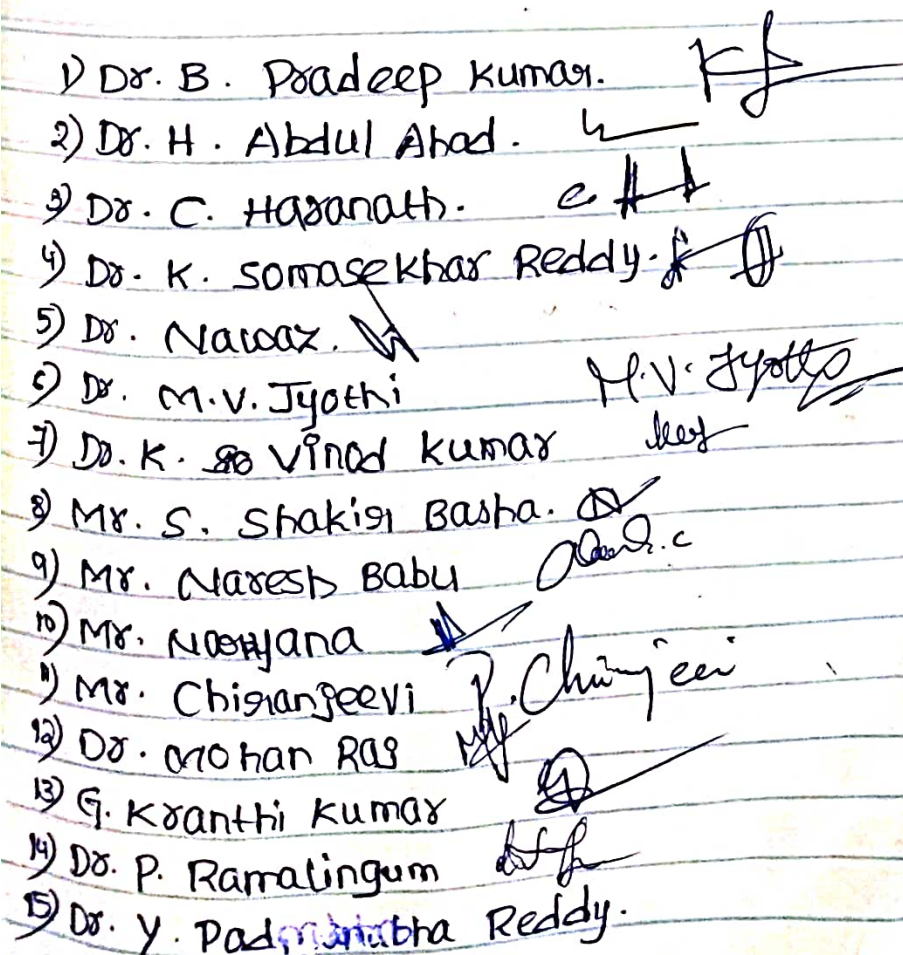 1) Dr. B. Pradeep Kumar.
2) Dr. H. Abdul Ahad.
3) Dr. C. Haranath.
4) Dr. K. Somasekhar Reddy.
5) Dr. Nawaz.
6) Dr. M.V. Jyothi M.V. Jyothi
7) Dr. K. Vinod Kumar
8) Mr. S. Shakir Basha.
9) Mr. Naresh Babu
10) Mr. Narayana
11) Mr. Chiranjeevi P. Chiranjeevi
12) Dr. Mohan Raj
13) G. Kranthi Kumar
14) Dr. P. Ramalingum
15) Dr. Y. Padmanabha Reddy.